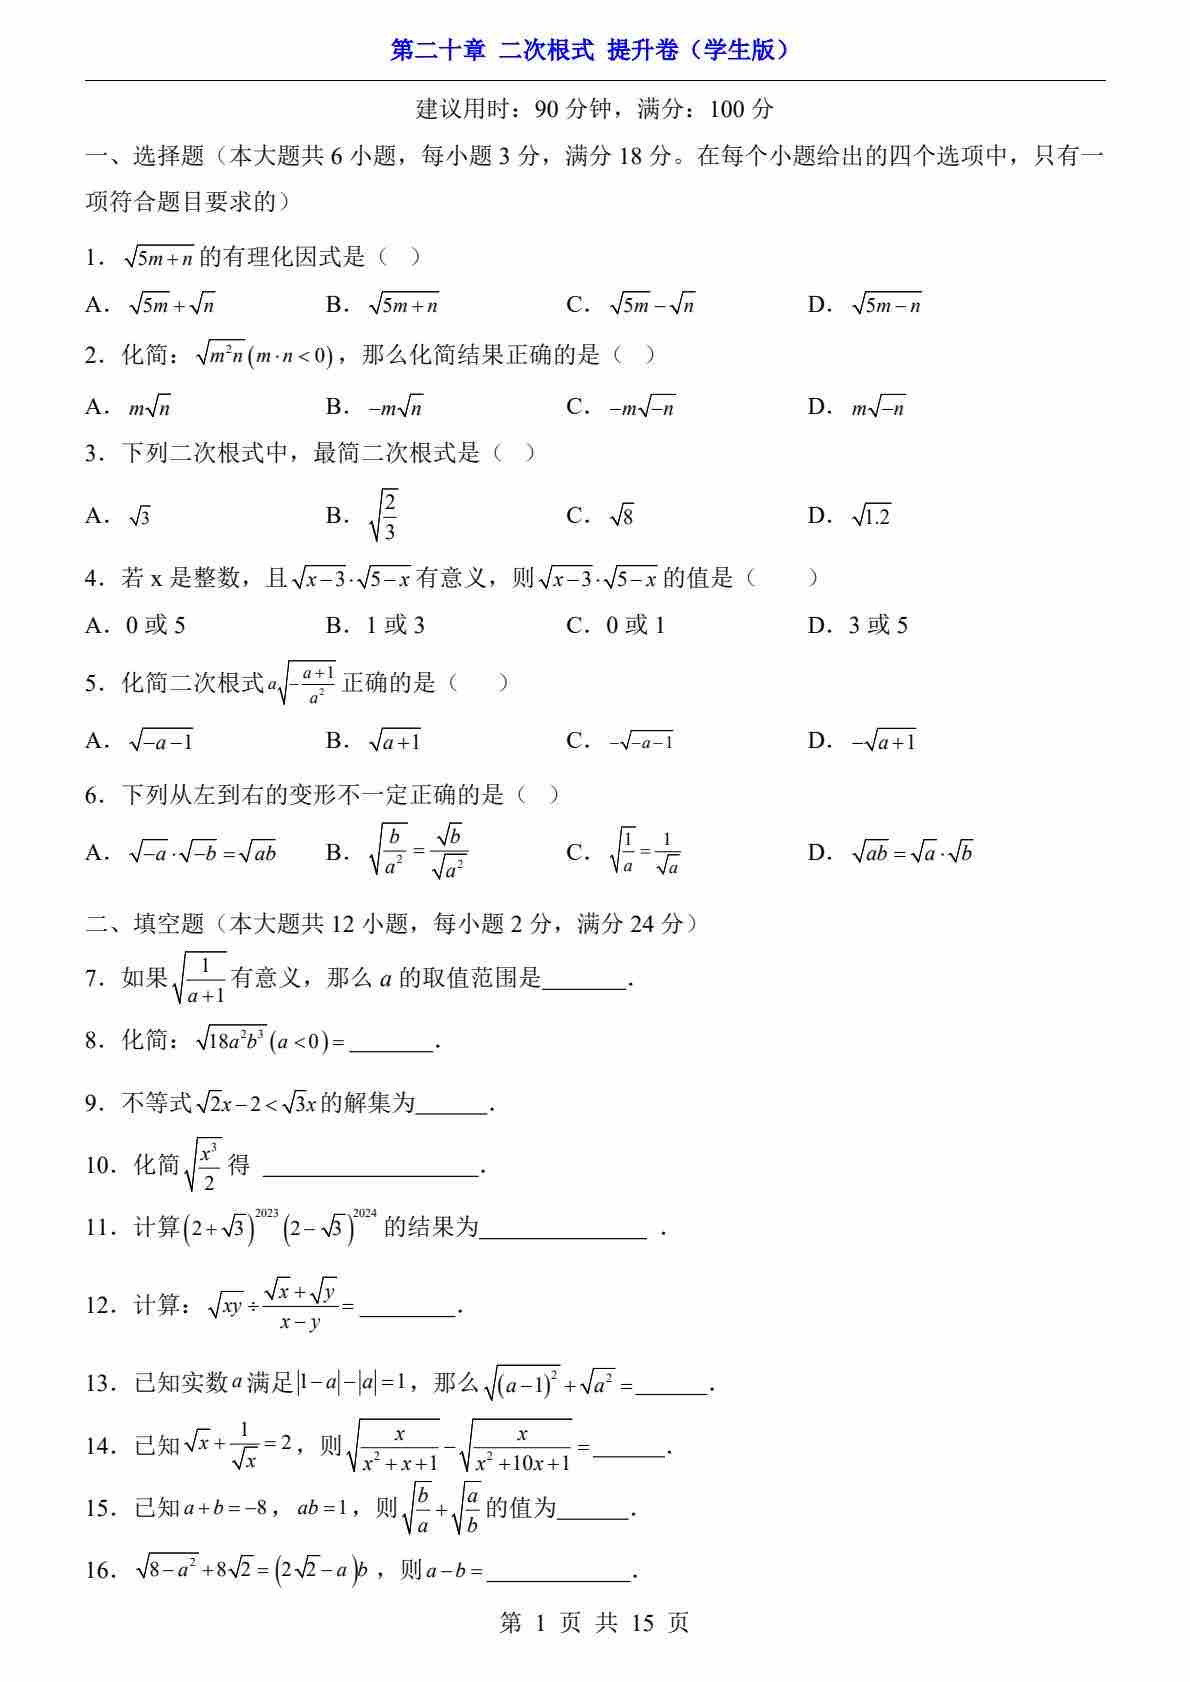 第二十章 二次根式 提升卷（学生版）
建议用时：90 分钟，满分：100 分
一、选择题（本大题共 6 小题，每小题 3 分，满分 18 分。在每个小题给出的四个选项中，只有一
项符合题目要求的）
1． $\sqrt{5m+n}$ 的有理化因式是（ ）
A． $\sqrt{5m}+\sqrt{n}$ B． $\sqrt{5m+n}$ C． $\sqrt{5m}-\sqrt{n}$ D． $\sqrt{5m-n}$
2．化简： $\sqrt{m^2n}(m\cdot n<0)$ ，那么化简结果正确的是（ ）
A． $m\sqrt{n}$ B． $-m\sqrt{n}$ C． $-m\sqrt{-n}$ D． $m\sqrt{-n}$
3．下列二次根式中，最简二次根式是（ ）
A． $\sqrt{3}$ B． $\sqrt{\frac{2}{3}}$ C． $\sqrt{8}$ D． $\sqrt{1.2}$
4．若 x 是整数，且 $\sqrt{x-3}\cdot\sqrt{5-x}$ 有意义，则 $\sqrt{x-3}\cdot\sqrt{5-x}$ 的值是（ ）
A．0 或 5 B．1 或 3 C．0 或 1 D．3 或 5
5．化简二次根式 $a\sqrt{-\frac{a+1}{a^2}}$ 正确的是（ ）
A． $\sqrt{-a-1}$ B． $\sqrt{a+1}$ C． $-\sqrt{-a-1}$ D． $-\sqrt{a+1}$
6．下列从左到右的变形不一定正确的是（ ）
A． $\sqrt{-a}\cdot\sqrt{-b}=\sqrt{ab}$ B． $\sqrt{\frac{b}{a^2}}=\frac{\sqrt{b}}{\sqrt{a^2}}$ C． $\sqrt{\frac{1}{a}}=\frac{1}{\sqrt{a}}$ D． $\sqrt{ab}=\sqrt{a}\cdot\sqrt{b}$
二、填空题（本大题共 12 小题，每小题 2 分，满分 24 分）
7．如果 $\sqrt{\frac{1}{a+1}}$ 有意义，那么 a 的取值范围是_______．
8．化简： $\sqrt{18a^2b^3}(a<0)=$ _______．
9．不等式 $\sqrt{2}x-2<\sqrt{3}x$ 的解集为______．
10．化简 $\sqrt{\frac{x^3}{2}}$ 得 __________________．
11．计算 $(2+\sqrt{3})^{2023}(2-\sqrt{3})^{2024}$ 的结果为______________ ．
12．计算： $\sqrt{xy}\div\frac{\sqrt{x}+\sqrt{y}}{x-y}=$ ________．
13．已知实数 $a$ 满足 $|1-a|-|a|=1$，那么 $\sqrt{(a-1)^2}+\sqrt{a^2}=$ ______．
14．已知 $\sqrt{x}+\frac{1}{\sqrt{x}}=2$，则 $\sqrt{\frac{x}{x^2+x+1}}-\sqrt{\frac{x}{x^2+10x+1}}=$ ______．
15．已知 $a+b=-8$， $ab=1$，则 $\sqrt{\frac{b}{a}}+\sqrt{\frac{a}{b}}$ 的值为______．
16． $\sqrt{8-a^2}+8\sqrt{2}=(2\sqrt{2}-a)b$ ，则 $a-b=$ ____________．
第 1 页 共 15 页